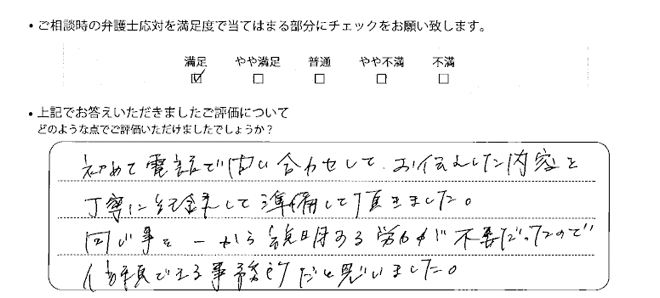 ・ご相談時の弁護士応対を満足度で当てはまる部分にチェックをお願い致します。
満足 やや満足 普通 やや不満 不満
☑ □ □ □ □
・上記でお答えいただきましたご評価について
どのような点でご評価いただけましたでしょうか?
初めて電話で問い合わせして、お伝えした内容を
丁寧に記録して準備して頂きました。
同じ事を一から説明する労力が不要だったので
信頼できる事務所だと思いました。